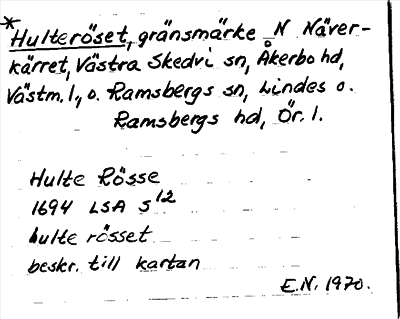 *Hulteröset, gränsmärke N Näver-
kärret, Västra Skedvi sn, Åkerbo hd,
Västm. l., o. Ramsbergs sn, Lindes o.
Ramsbergs hd, Ör. l.
Hulte Rösse
1694 LSA S 12
hulte rösset
beskr. till kartan
E.N. 1970.